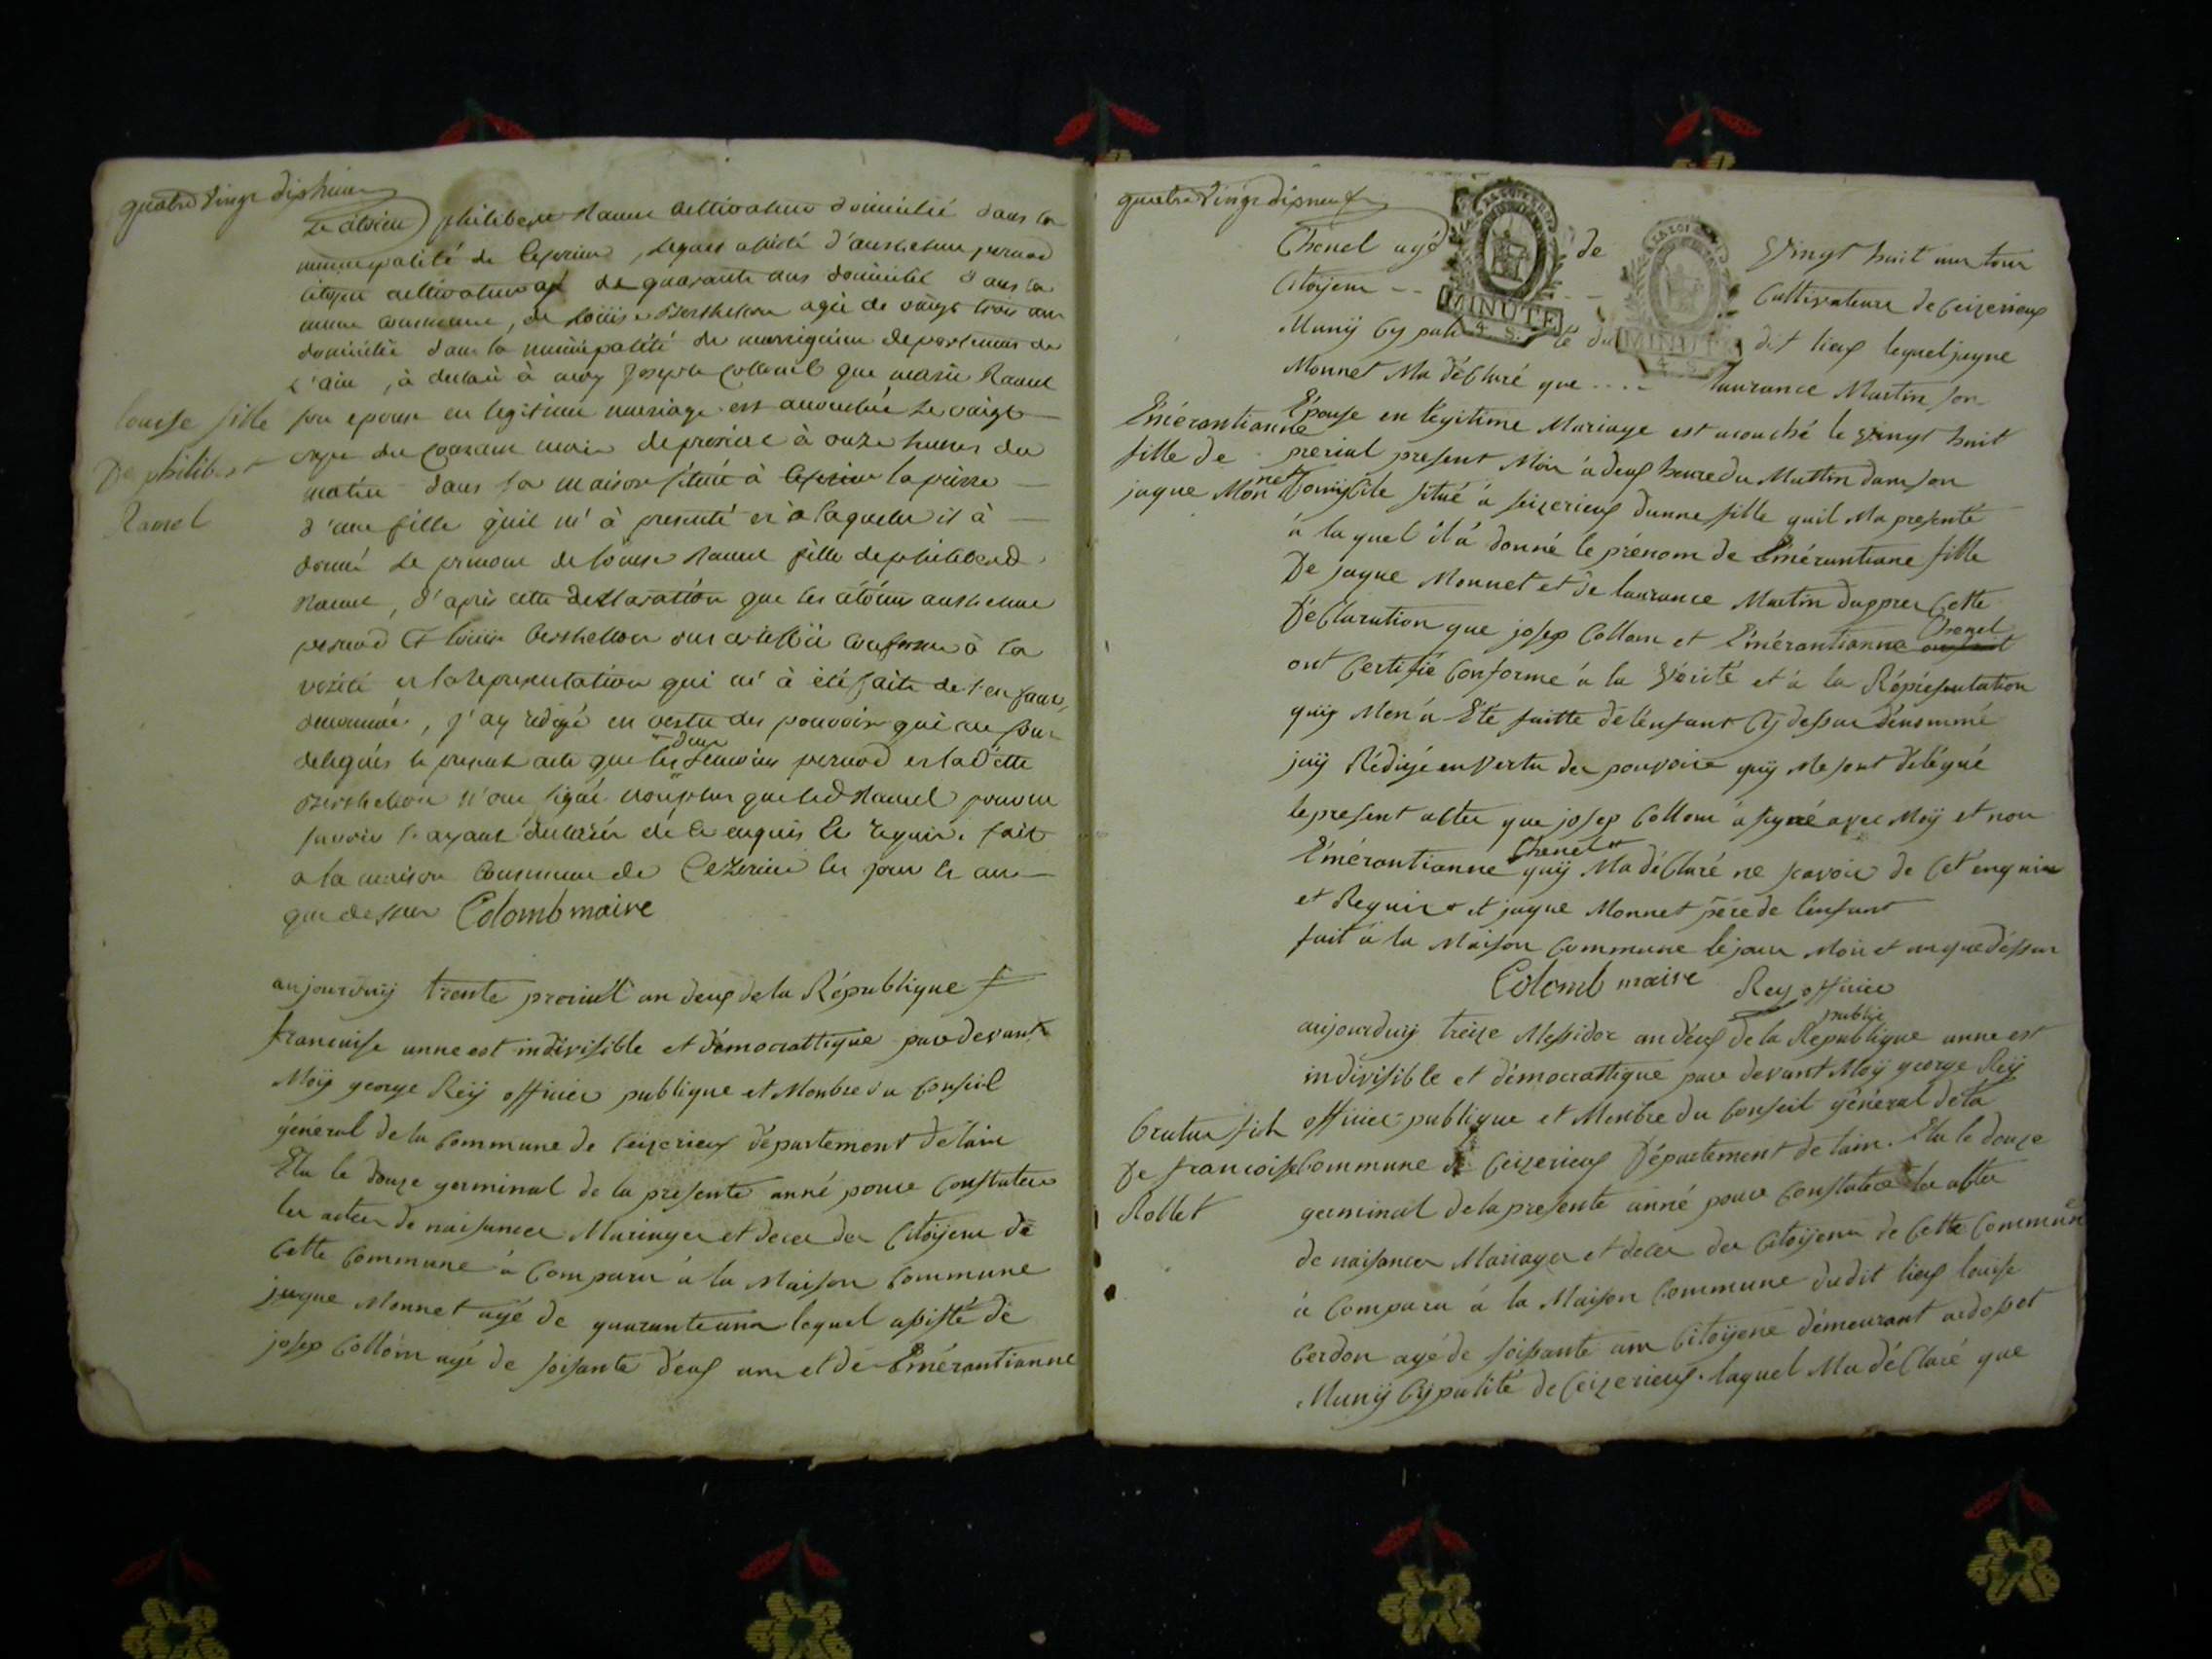 quatre vingt dixhuit
Le citoien philibert Ramel cultivateur domicilié dans la
municipalité de , lequel assisté d'anthelme pernod
citoyen cultivateur agé de quarante ans domicilié dans la
meme commune, de Loüise Berthelon agée de vaingt trois ans
domicilie dans la municipalité de departement de
l'ain, à declaré à moy Joseph que marie Ramel
son epouse en legitime mariage est accouchée le vaingt
du courant mois de prerial à onze heures du
matin dans sa maison située à
d'une fille qu'il m'à presenté et à laquelle il à
donné le prenom de Louise Ramel fille de philiberd
Ramel, d'après cette desclaration que les citoiens anthelme
pernod et loüise berthelon ont conforme à la
verité et la representation qui m'à été faite de l'enfant
denommée, j'ay rédigé en vertu des pouvoirs qui me sont
delegués le present acte que les deux temoins pernod et la ditte
Berthelon n'ont signé non plus que led Ramel pour ne
savoir l'ayant declaré de ce enquis et requis. fait
a la maison commune de Cezerieu les jour et an
que dessus Colomb maire
Louise fille
De philibert
Ramel
aujourduij trente prerial an deuf de la République
francaise unne est indivisible et démocrattique par devant
Moÿ george Reÿ officier publique et Monbre du Conseil
général de la Commune de Ceizerieuf département de lain
Elu le douze germinal de la presente anné pour Constater
les actes de naisances Mariages et deces des Citoÿens de
Cette Commune à Comparu à la Maison Commune
jaque Monnet agé de quarante ans lequel asisté de
josep Collom agé de soisante deuf ans et de Emérantianne
quatre vingt dixneuf
Chenel agé de vingt huit ans tous
Citoÿens -- Cultivateurs de Ceizerieuf
Munÿ Cy pali té du dit lieuf lequel jaque
MINUTE
4. S.
MINUTE
4. S.
Monnet Ma déClaré que .... laurance Martin son
Épouse en légitime Mariage est acouché le vingt huit
prerial present Mois à deuf heure du Mattin dans son
Domicile situé à seizerieuf dunne fille quil Ma presenté
à laquel il à donné le prénom de Emérantiane fille
De jaque Monnet et de laurance Martin dappres Cette
DéClaration que josep Collom et Emérantianne Chenel
ont Certifié Conforme à la vérité et à la Réprésentation
quÿ Men à Eté faitte de lenfant Cÿ dessus dénommé
jaÿ Rédigé en vertu des pouvoirs quÿ Me sont délégué
le present actes que josep Collom à signé avec Moÿ et non
Emérantianne Chenel quÿ Ma déClaré ne scavoir de Cet enquis
et Requis et jaque Monnet pére de lenfant
fait à la Maison Commune le jour Mois et an que déssus
Colomb maire Rey officier
public
Emérantianne
fille de
jaque Monnet
aujourduij treize Messidor an deuf de la Republique unne est
indivisible et démocrattique par devant Moÿ george Reÿ
officier publique et Menbre du Conseil général de la
Commune de Ceizerieuf Département de lain. Elu le douze
germinal de la presente anné pour Constater les actes
de naisances Mariages et deces des Citoÿens de Cette Commune
à Comparu à la Maison Commune dudit lieuf louise
Cerdon agé de soissante ans Citoÿene démeurant
Munÿ Cÿpalité de Ceizerieuf. laquel Ma déClaré que
Brutus fils
De francoise
Rollet